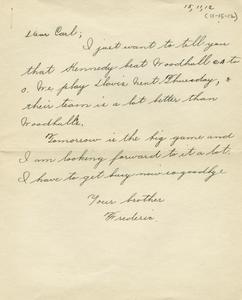 15,11,12
(11-15-12)
Dear Carl;
I just want to tell you
that Kennedy beat Woodhull to
0. We play Slavis next Thursday, &
their team is a lot better than
Woodhull.
Tomorrow is the big game and
I am looking forward to it a lot.
I have to get busy now so goodbye
Your brother
Frederic